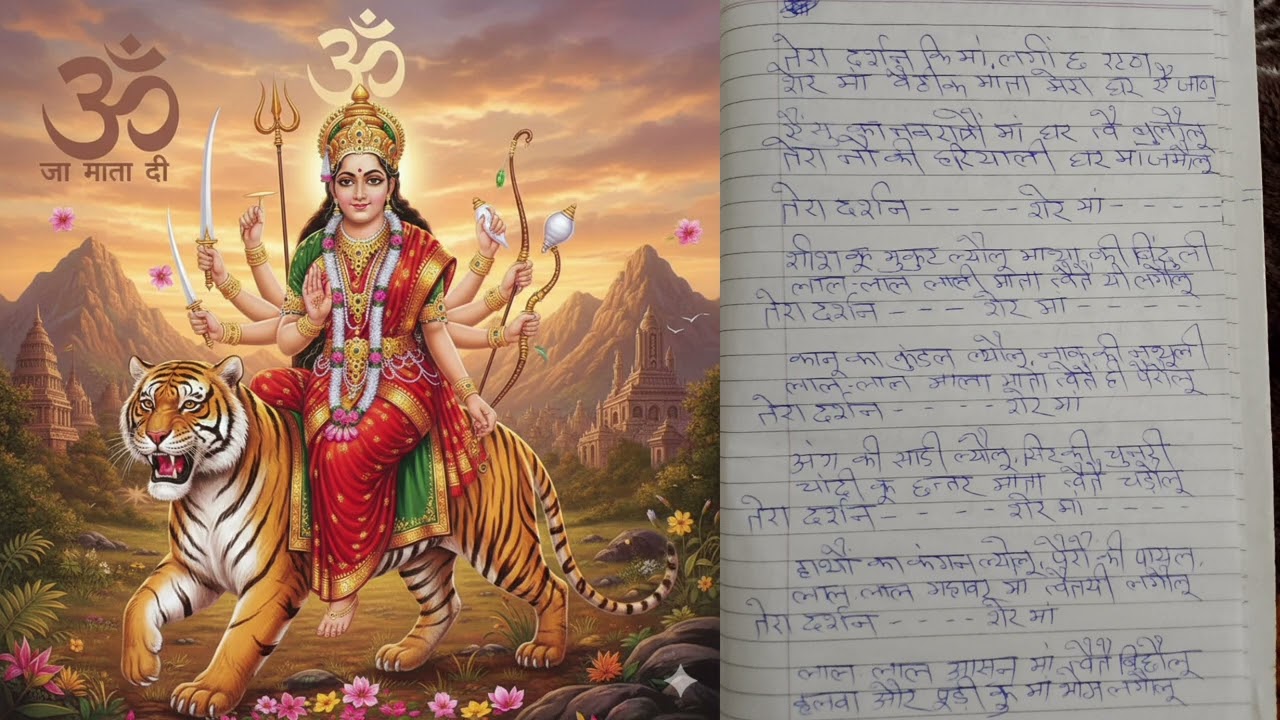 ॐ
ॐ
जा माता दी
तेरा दर्शन कि मां, लगीं छ रटण
शेर मा बैठीक माता मेरा घर ऐ जाण
चैत का नवरातों मां घर त्वै बुलौलू
तेरा नौ की हरियाली घर मां जमौलू
तेरा दर्शन - - - - - शेर मां - - - - -
शीश कू मुकुट ल्यौलू माथा की बिंदुली
लाल-लाल लाली माता त्वैतै यी लगौलू
तेरा दर्शन - - - - शेर मा - - - - -
कानू का कुंडल ल्यौलू, नाक की नथुली
लाल-लाल माला माता त्वैतै ही पैरौलू
तेरा दर्शन - - - - - शेर मां
अंग की साडी ल्यौलू, सिर की चुनरी
चांदी कू छत्तर माता त्वैतै चढ़ौलू
तेरा दर्शन - - - - - शेर मां - - - - -
हाथौं का कंगन ल्यौलू, पैरों की पायल,
लाल लाल महावर मां त्वैतयी लगौलू
तेरा दर्शन - - - - शेर मां
लाल लाल आसन मां त्वैतै बिछौलू
हलवा और पूड़ी कू मां भोग लगौलू